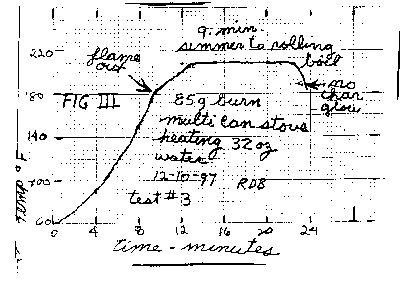 9. min.
simmer to rolling
boil
flame
out
no
char
glow
FIG III
85g burn
multi can stove
heating 32 oz
water
12-10-97 RDB
test #3
220
180
140
100
60
0 4 8 12 16 20 24
time - minutes
temp °F